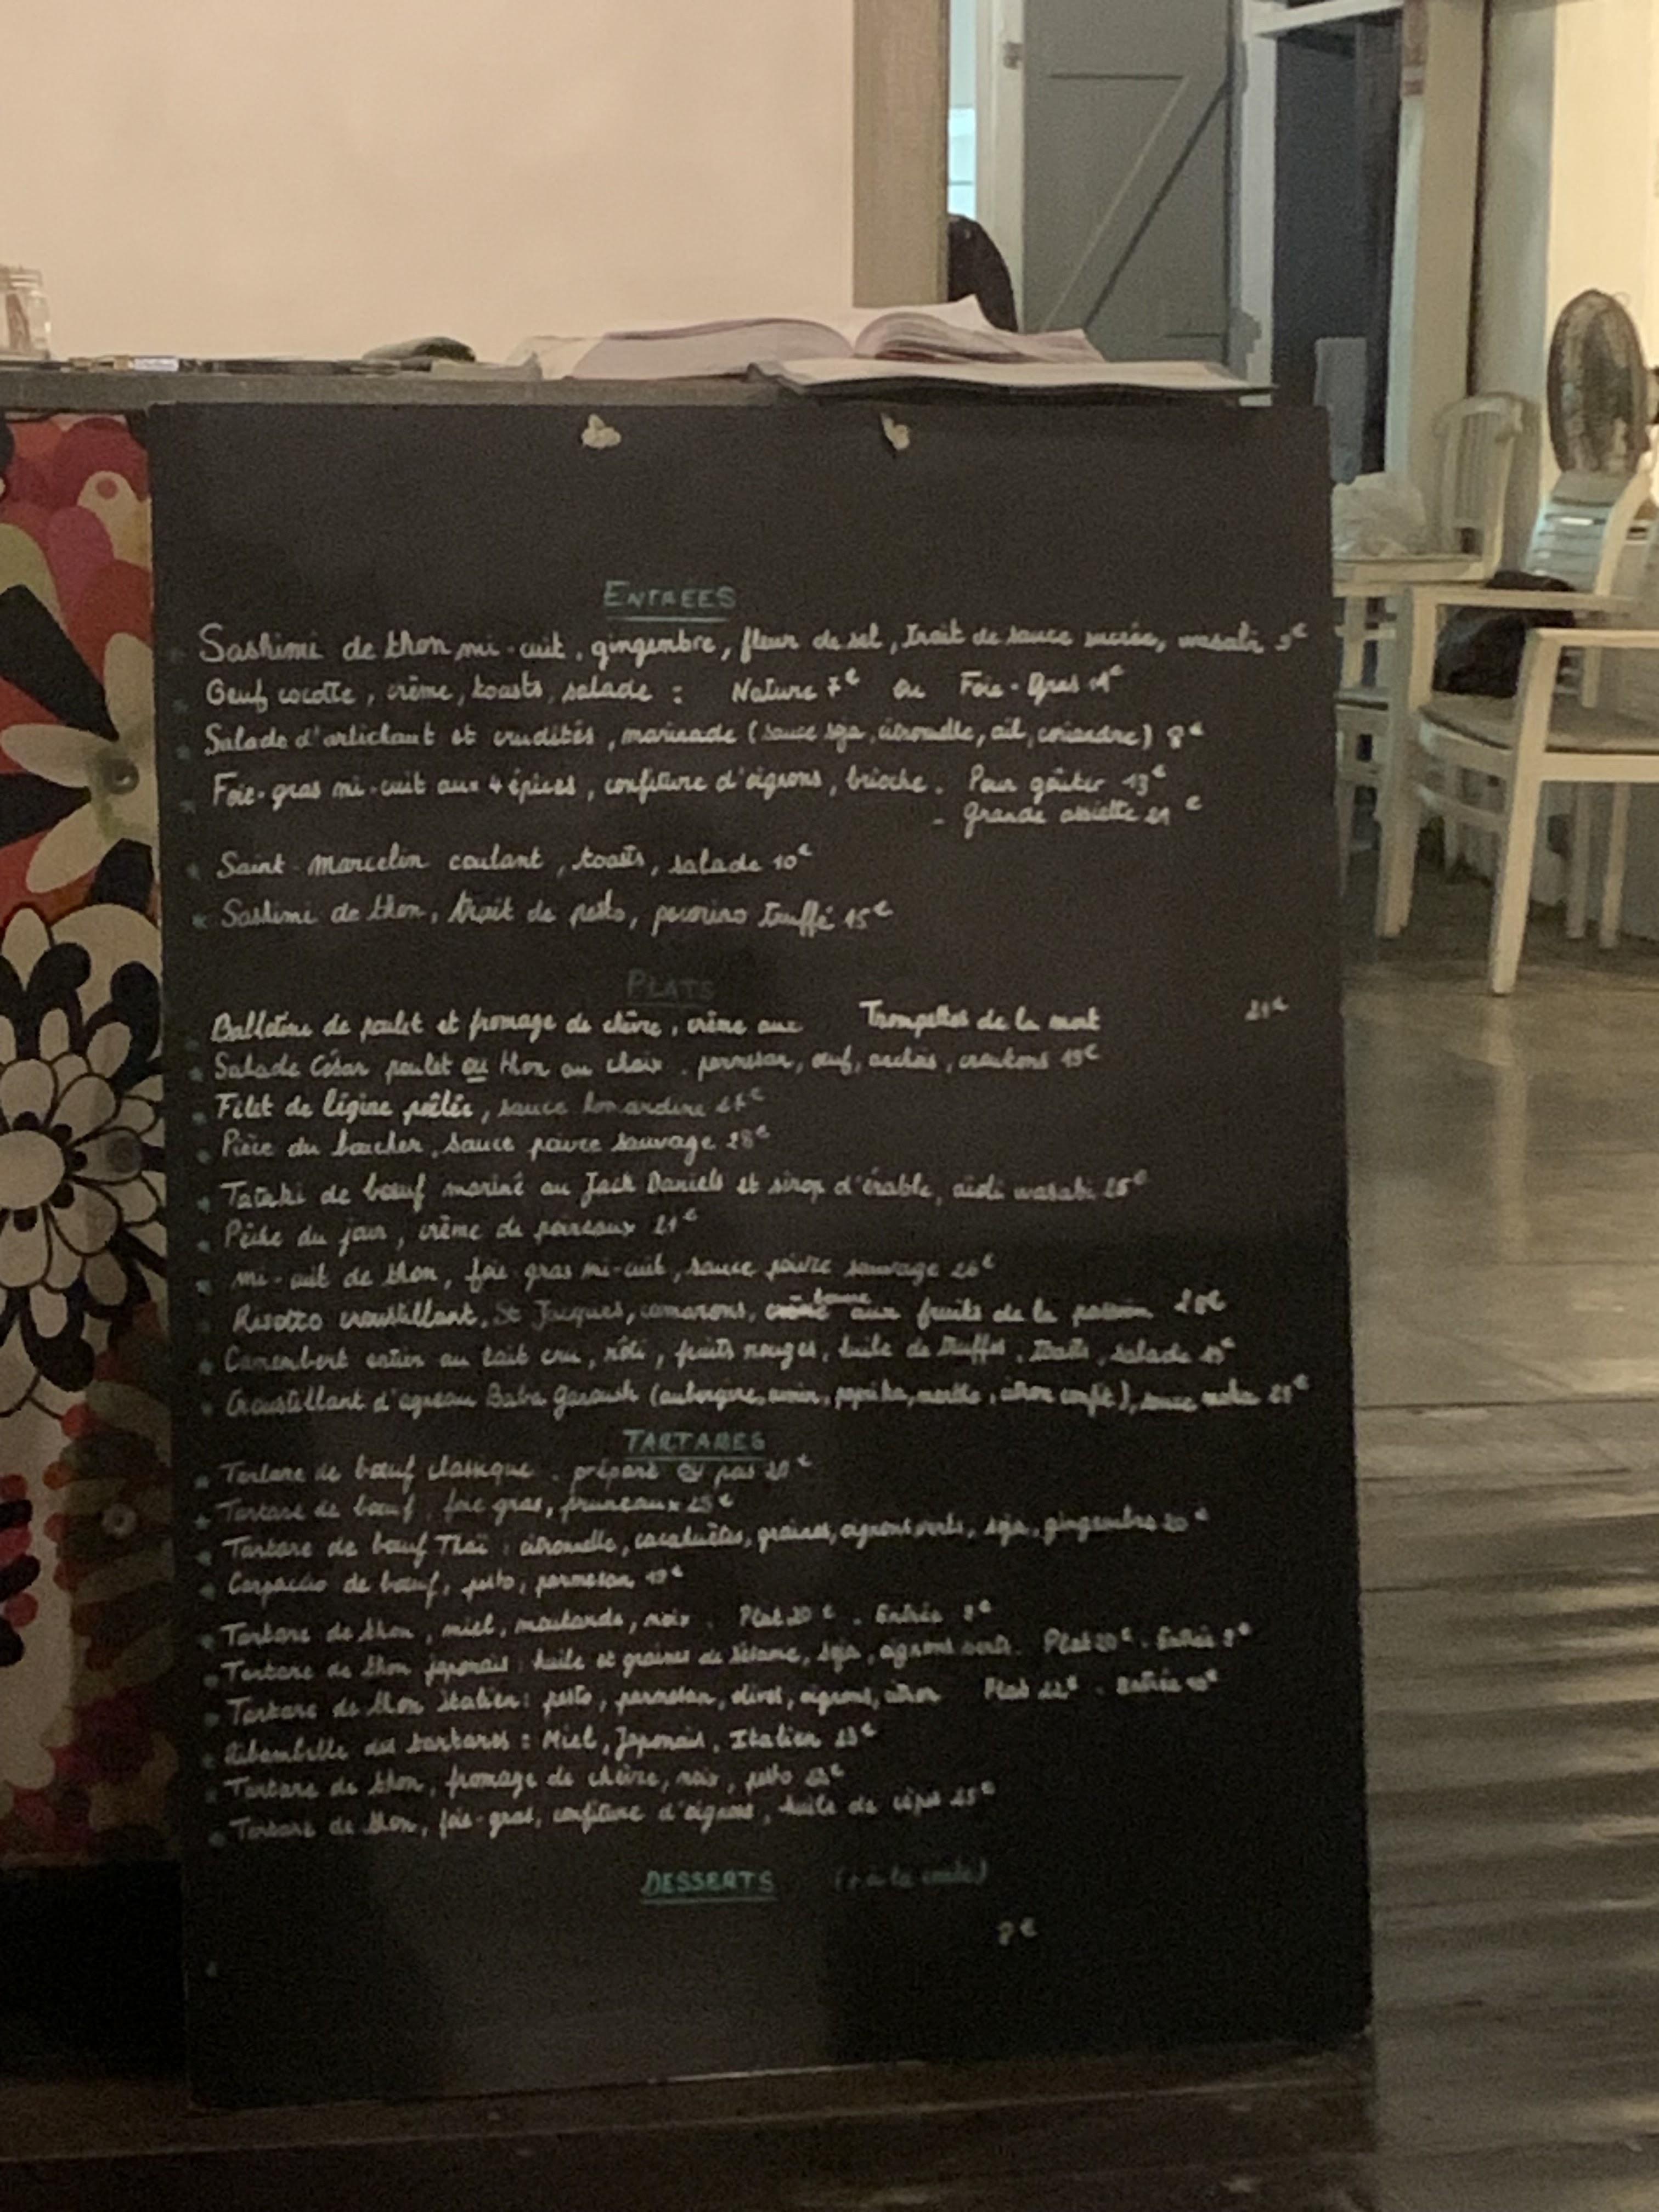 ENTREES
Sashimi de thon mi-cuit, gingembre, fleur de sel, trait de sauce sucrée, wasabi 9€
Oeuf cocotte, crème, toasts, salade : Nature 7€ ou Foie-Gras 11€
Salade d'artichaut et crudités, marinade (sauce soja, citronnelle, ail, coriandre) 8€
Foie-gras mi-cuit aux 4 épices, confiture d'oignons, brioche. Pour goûter 13€
- Grande assiette 21€
Saint-Marcelin coulant, toasts, salade 10€
Sashimi de thon, trait de pesto, pecorino truffé 15€
PLATS
Ballotine de poulet et fromage de chèvre, crème aux Trompettes de la mort 21€
Salade César poulet ou thon au choix. parmesan, œuf, anchois, croutons 19€
Filet de légine poêlée, sauce homardine
Pièce du boucher, sauce poivre sauvage 28€
Tataki de bœuf mariné au Jack Daniels et sirop d'érable, aïoli wasabi 25€
Pêche du jour, crème de poireaux 21€
mi-cuit de thon, foie gras mi-cuit, sauce poivre sauvage 26€
Risotto croustillant, St Jacques, camarons, aux fruits de la passion
Camembert entier au lait cru, rôti, fruits rouges, huile de truffes, toasts, salade 19€
Croustillant d'agneau Baba Ganoush (aubergine, cumin, paprika, menthe, citron confit), sauce
TARTARES
Tartare de bœuf classique. préparé ou pas 20€
Tartare de bœuf, foie gras, pruneaux 25€
Tartare de bœuf Thaï : citronnelle, cacahuètes, graines, oignons verts, soja, gingembre 20€
Carpaccio de bœuf, pesto, parmesan 19€
Tartare de thon, miel, moutarde, noix. Plat 20€. Entrée 9€
Tartare de thon japonais : huile et graines de sésame, soja, oignons verts. Plat 20€. Entrée 9€
Tartare de thon italien : pesto, parmesan, olives, oignons, citron Plat 22€. Entrée 10€
Ribambelle des tartares : Miel, Japonais, Italien 23€
Tartare de thon, fromage de chèvre, noix, pesto 23€
Tartare de thon, foie-gras, confiture d'oignons, huile de cèpes 25€
DESSERTS (+ à la carte)
8€